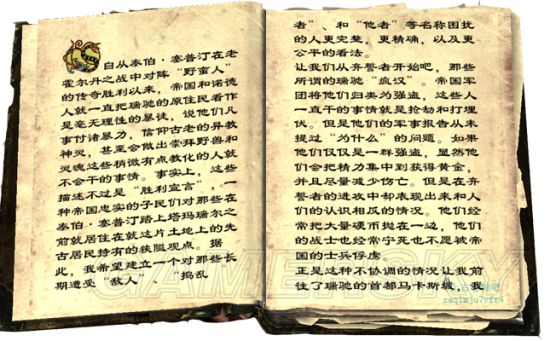 自从泰伯·塞普汀在老
霍尔丹之战中对阵“野蛮人”
的传奇胜利以来，帝国和诺德
人就一直把瑞驰的原住民看作
是毫无理性的暴徒，说他们凡
事付诸暴力，信仰古老的异教
神灵，甚至会做出崇拜野兽和
灵魂这些稍微有点教化的人就
不会干的事情。事实上，这些
描述不过是“胜利宣言”，一
种帝国忠实的子民们对那些在
泰伯·塞普汀踏上塔玛瑞尔之
前就居住在就这片土地上的先
古居民持有的狭隘观点。据
此，我希望建立一个对那些长
期遭受“敌人”、“捣乱
者”、和“他者”等名称困扰
的人更完整，更精确，以及更
公平的看法。
让我们从弃誓者开始吧，那些
所谓的瑞驰“疯汉”。帝国军
团将他们归类为强盗，这些人
一直干的事情就是抢劫和打埋
伏。但是他们的军事报告从未
提过“为什么”的问题。如果
他们仅仅是一群强盗，显然他
们会把精力集中到获得黄金，
并且尽量减少伤亡。但是在弃
誓者的进攻中却表现出来和人
们的认识相反的情况。他们经
常把大量硬币抛在一边，他们
的战士也经常宁死也不愿被帝
国的士兵俘虏。
正是这种不协调的情况让我前
往了瑞驰的首都马卡斯城，我
GAMERSKY
zaq1mju7vfr4